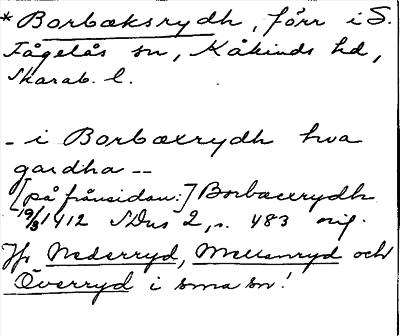 * Borbæksrydh, förr i S.
Fågelås sn, Kåkinds hd,
Skarab. l.
- i Borbæxrydh hwa
gardha --
[på frånsidan:] Borbæxrydh
19/3 1412 SDns 2, s. 483 orig.
Jfr Nederryd, Mellanryd och
Överryd i sma sn!